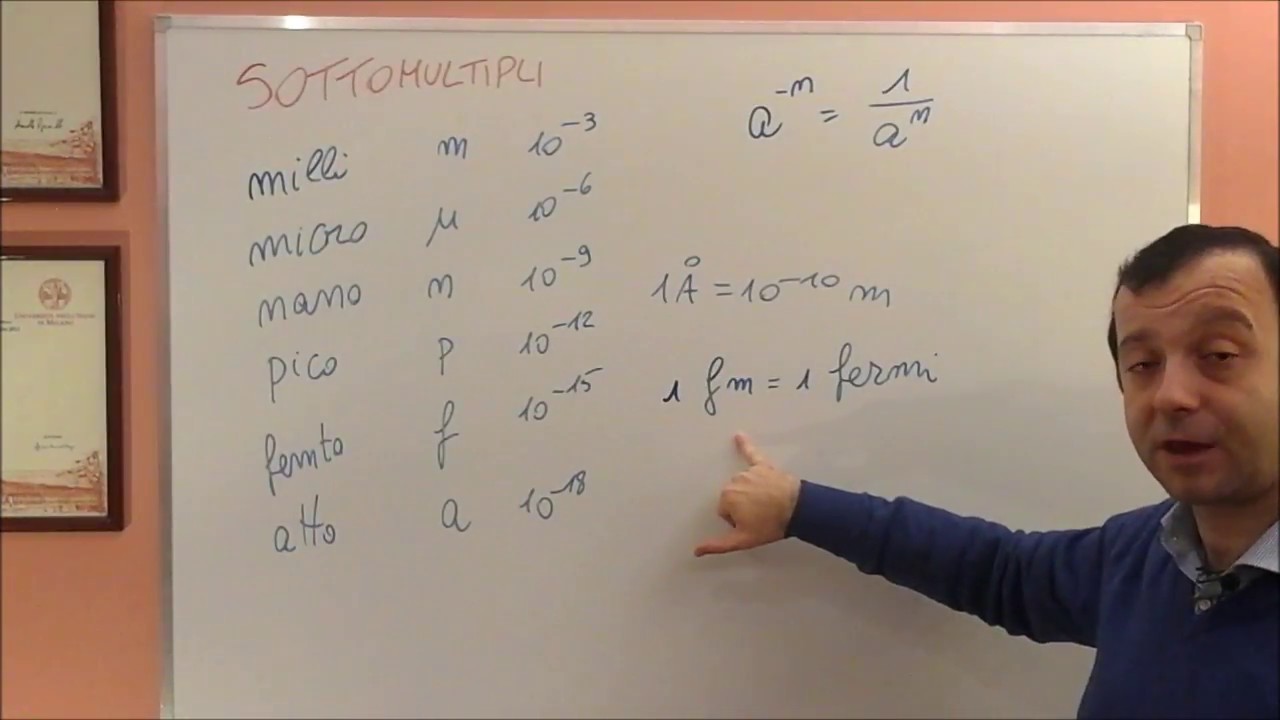 SOTTOMULTIPLI
milli m 10⁻³
micro μ 10⁻⁶
nano n 10⁻⁹
pico p 10⁻¹²
femto f 10⁻¹⁵
atto a 10⁻¹⁸
a⁻ⁿ = 1/aⁿ
1 Å = 10⁻¹⁰ m
1 fm = 1 fermi